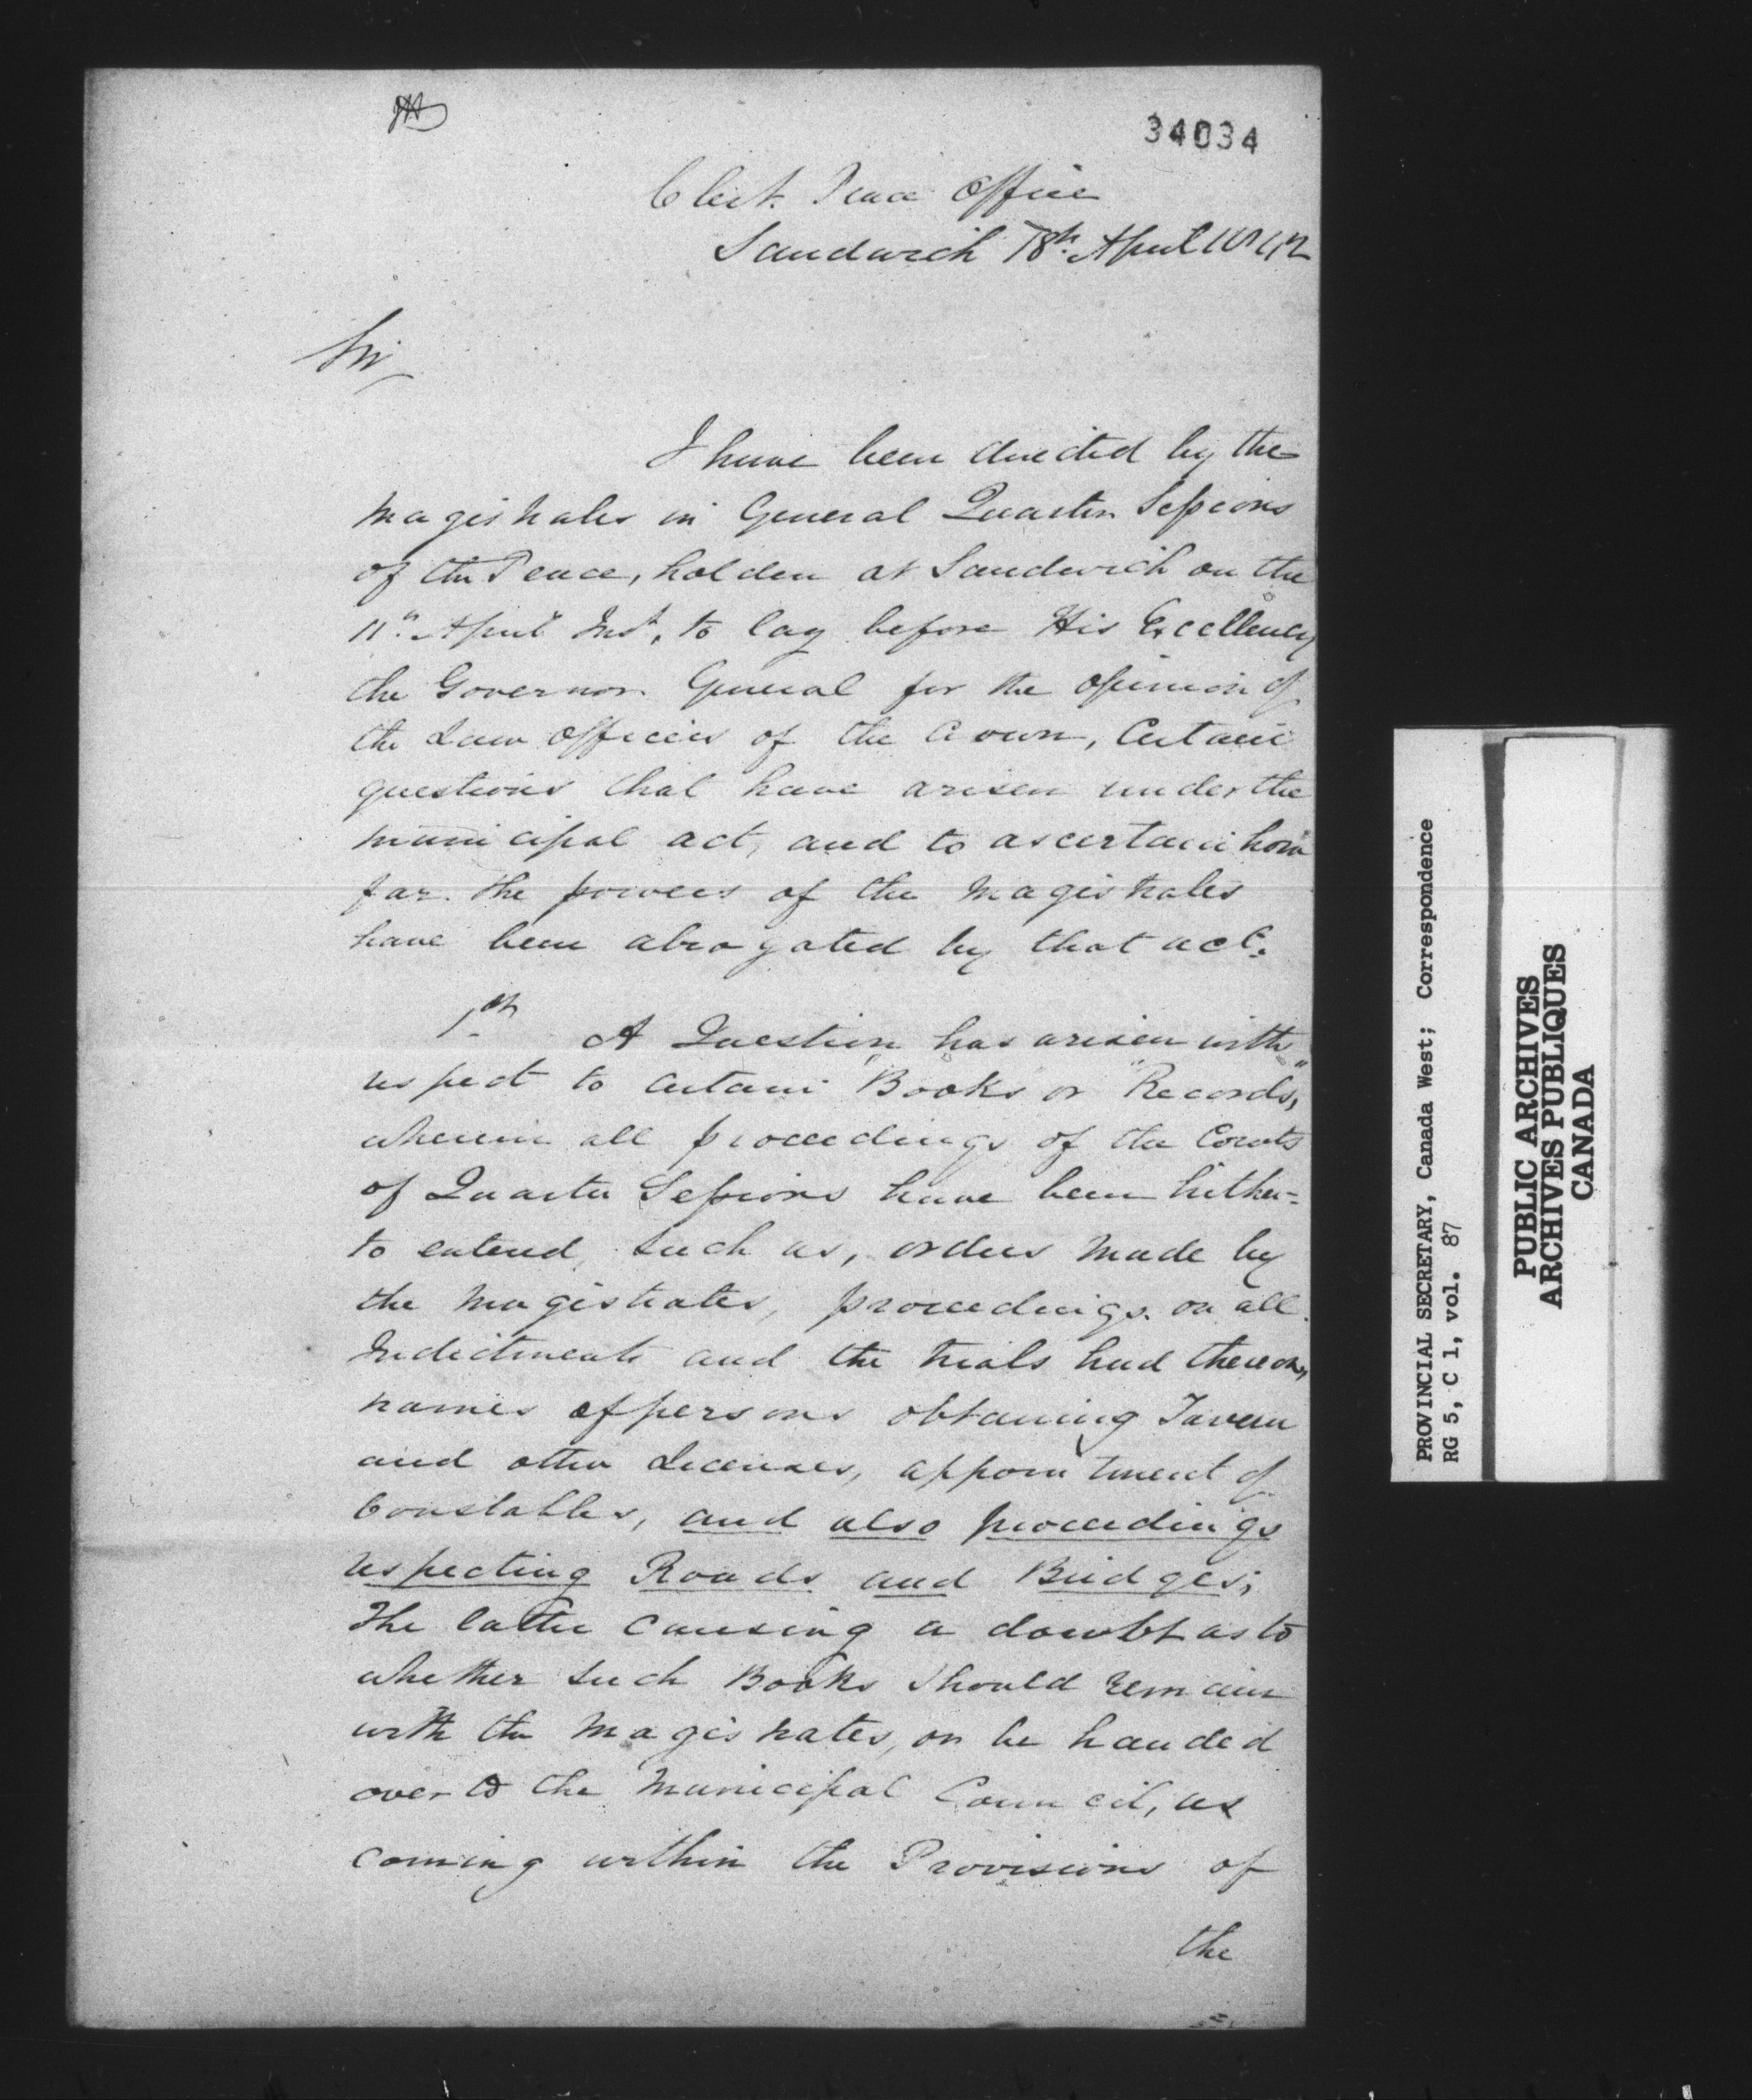 34034
Clerk Peace Office
Sandwich 18th April 1842
Sir
I have been directed by the
Magistrates in General Quarter Sessions
of the Peace, holden at Sandwich on the
11th April Inst, to lay before His Excellency
the Governor General for the opinion of
the Law Officers of the Crown, Certain
questions that have arisen under the
Municipal act, and to ascertain how
far the powers of the Magistrates
have been abrogated by that act.
1th A Question has arisen with
respect to certain "Books or Records,"
wherein all proceedings of the Courts
of Quarter Sessions have been hither=
to entered, such as, orders made by
the Magistrates, proceedings on all
Indictments and the trials had thereon,
names of persons obtaining Tavern
and other Licenses, appointment of
Constables, and also proceedings
respecting Roads and Bridges;
The latter causing a doubt as to
whether such Books should remain
with the Magistrates, or be handed
over to the Municipal Council, as
coming within the Provisions of
the
PROVINCIAL SECRETARY, Canada West; Correspondence
RG 5, C 1, vol. 87
PUBLIC ARCHIVES
ARCHIVES PUBLIQUES
CANADA